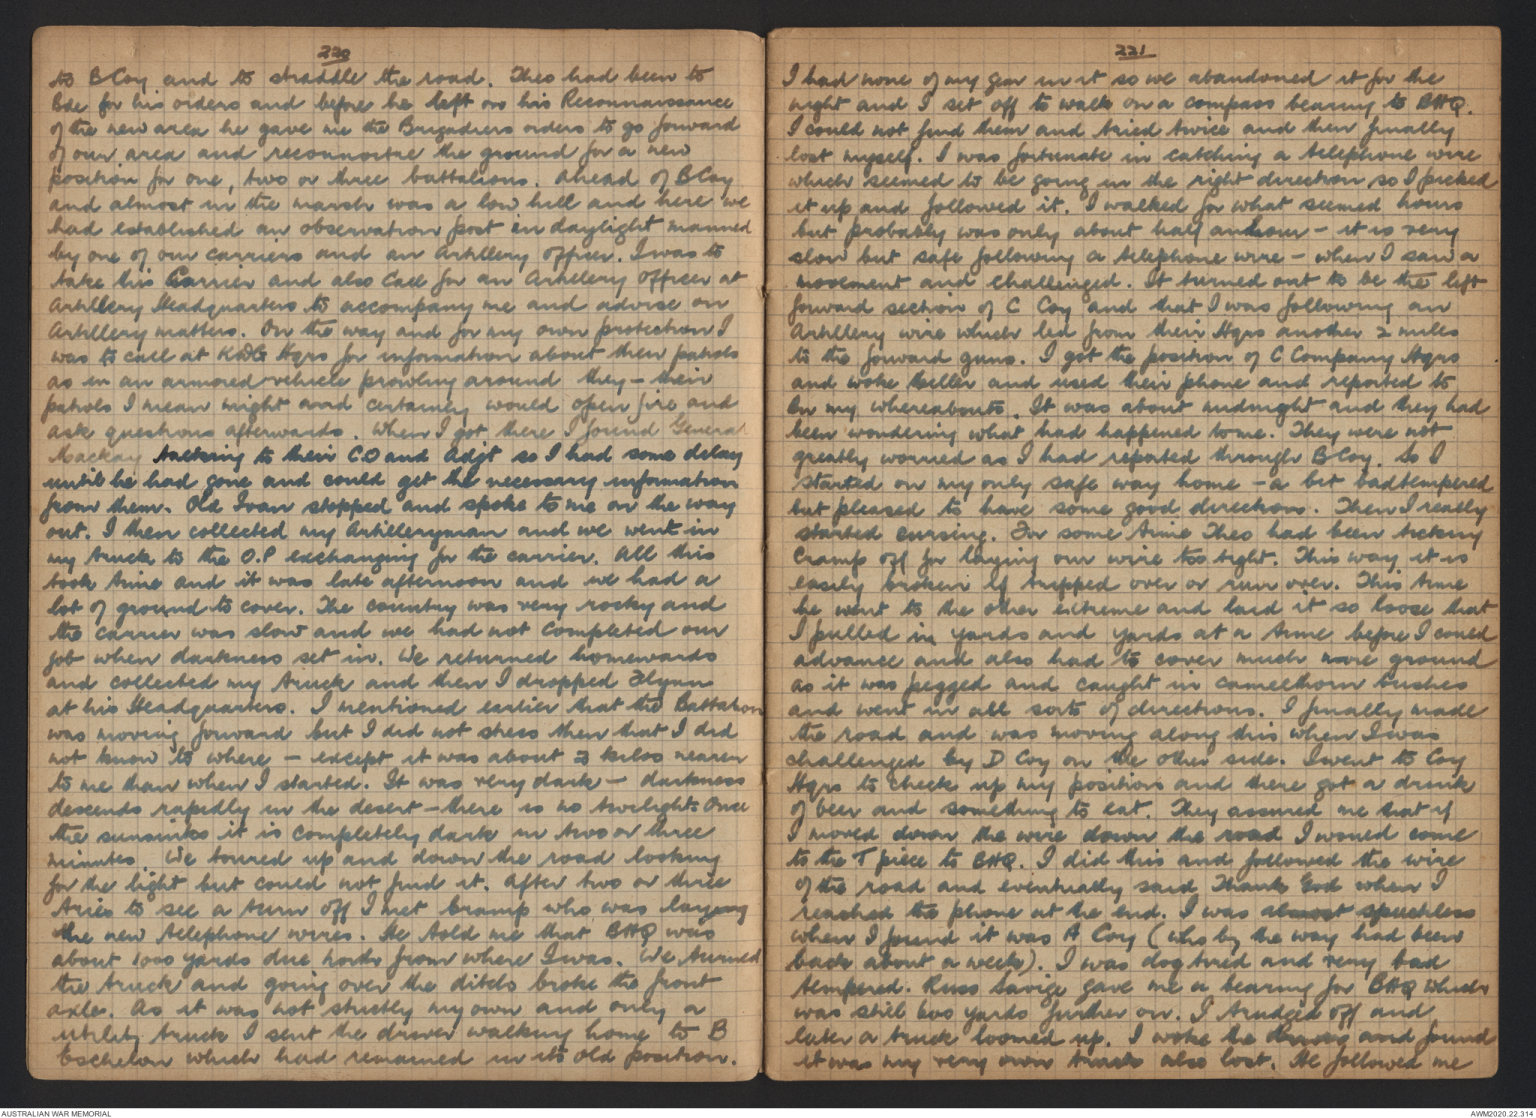 220
to B Coy and to straddle the road. Theo had been to
Bde for his orders and before he left on his Reconnaissance
of the new area he gave me the Brigadiers orders to go forward
of our area and reconnoitre the ground for a new
position for one, two or three battalions. Ahead of B Coy
and almost in the marsh was a low hill and here we
had established an observation post in daylight manned
by one of our carriers and an Artillery officer. I was to
take this Carrier and also call for an Artillery officer at
Artillery Headquarters to accompany me and advise on
Artillery matters. On the way and for my own protection I
was to call at KDG Hqrs for information about their patrols
as in an armored vehicle prowling around they - their
patrols I mean might and certainly would open fire and
ask questions afterwards. When I got there I found General
Mackay talking to their CO and Adjt so I had some delay
until he had gone and could get the necessary information
from them. Old Ivan stopped and spoke to me on the way
out. I then collected my Artilleryman and we went in
my truck to the O.P exchanging for the carrier. All this
took time and it was late afternoon and we had a
lot of ground to cover. The country was very rocky and
the carrier was slow and we had not completed our
job when darkness set in. We returned homewards
and collected my truck and then I dropped Flynn
at his Headquarters. I mentioned earlier that the Battalion
was moving forward but I did not stress then that I did
not know to where - except it was about 3 kilos nearer
to me than when I started. It was very dark - darkness
descends rapidly in the desert - there is no twilight. Once
the sun sinks it is completely dark in two or three
minutes. We toured up and down the road looking
for the light but could not find it. After two or three
tries to see a turn off I met Cramp who was laying
the new telephone wires. He told me that BHQ was
about 1000 yards due north from where I was. We turned
the truck and going over the ditch broke the front
axle. As it was not strictly my own and only a
utility truck I sent the driver walking home to B
Eschelon which had remained in its old position.
221
I had none of my gear in it so we abandoned it for the
night and I set off to walk on a compass bearing to BHQ.
I could not find them and tried twice and then finally
lost myself. I was fortunate in catching a telephone wire
which seemed to be going in the right direction so I picked
it up and followed it. I walked for what seemed hours
but probably was only about half an hour - it is very
slow but safe following a telephone wire - when I saw a
movement and challenged. It turned out to be the left
forward section of C Coy and that I was following an
Artillery wire which led from their Hqrs another 2 miles
to the forward guns. I got the position of C Company Hqrs
and woke Miller and used their phone and reported to
Bn my whereabouts. It was about midnight and they had
been wondering what had happened to me. They were not
greatly worried as I had reported through B Coy. So I
started on my only safe way home - a bit badtempered
but pleased to have some good directions. Then I really
started cursing. For some time Theo had been ticking
Cramp off for laying our wire too tight. This way it is
easily broken if tripped over or run over. This time
he went to the other extreme and laid it so loose that
I pulled in yards and yards at a time before I could
advance and also had to cover much more ground
as it was pegged and caught in camelthorn bushes
and went in all sorts of directions. I finally made
the road and was moving along this when I was
challenged by D Coy on the other side. I went to Coy
Hqrs to check up my position and there got a drink
of beer and something to eat. They assured me that if
I moved down the wire down the road I would come
to the T piece to BHQ. I did this and followed the wire
of the road and eventually said Thank God when I
reached the phone at the end. I was almost speechless
when I found it was A Coy (who by the way had been
back about a week). I was dog tired and very bad
tempered. Russ Savige gave me a bearing for BHQ which
was still 600 yards further on. I trudged off and
later a truck loomed up. I woke the driver and found
it was my very own truck also lost. He followed me
AUSTRALIAN WAR MEMORIAL
AWM2020.22.314